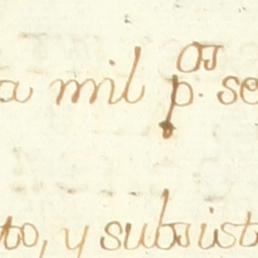 a mil p.os se
to, y subsist